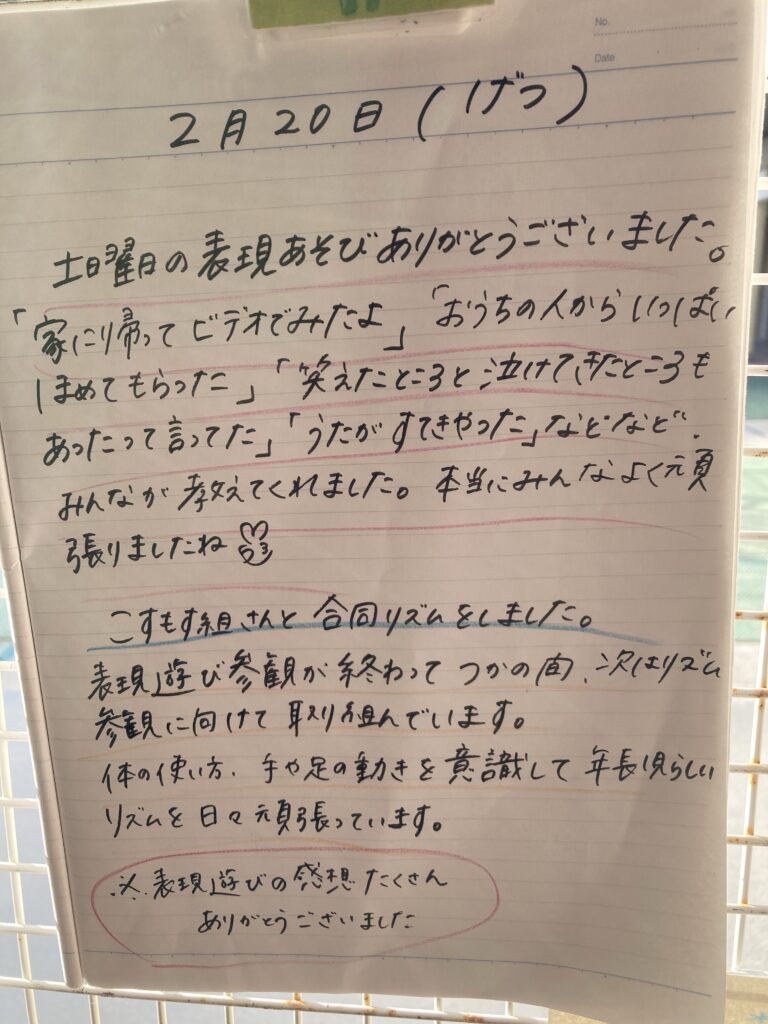 No.
Date
2月20日(げつ)
土曜日の表現あそびありがとうございました。
「家に帰ってビデオでみたよ」「おうちの人からいっぱい
ほめてもらった」「笑えたところと泣けてきたところも
あったって言ってた」「うたがすてきやった」などなど、
みんなが教えてくれました。本当にみんなよく頑
張りましたね
こすもす組さんと合同リズムをしました。
表現遊び参観が終わってつかの間、次はリズム
参観に向けて取り組んでいます。
体の使い方、手や足の動きを意識して年長児らしい
リズムを日々頑張っています。
※表現遊びの感想たくさん
ありがとうございました